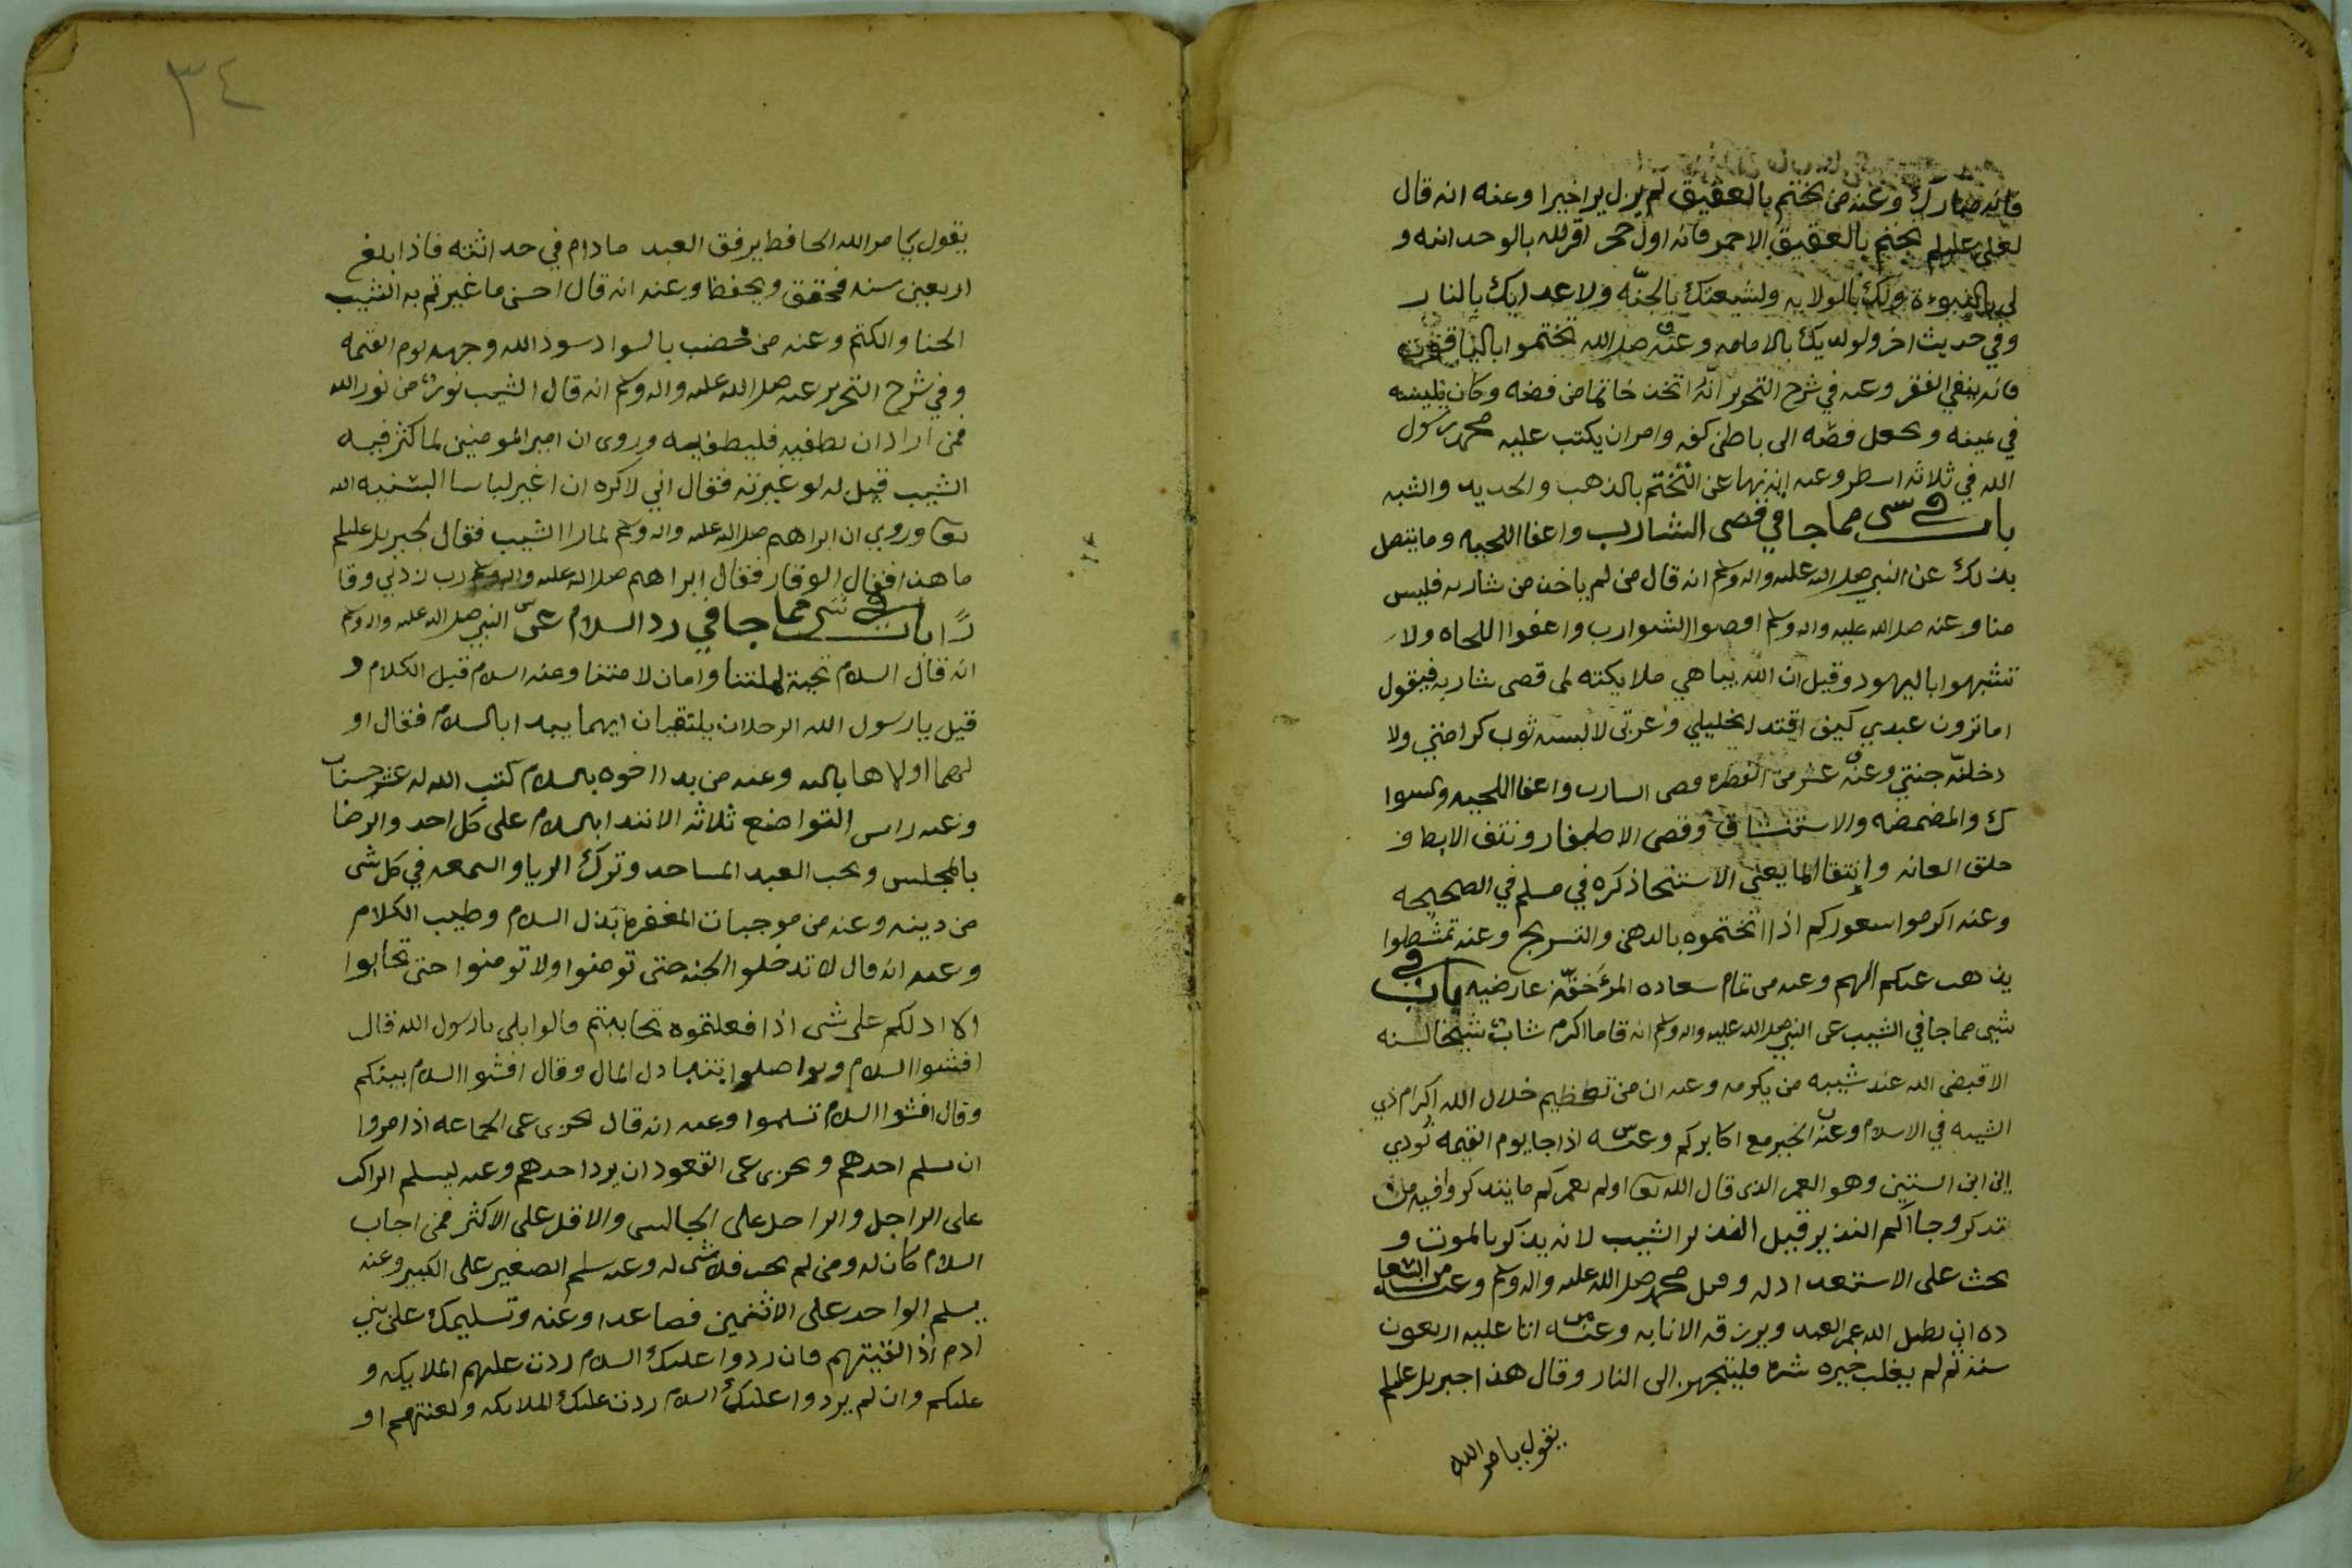 فانه مبارك وعنه من تختم بالعقيق لم يزل يرا خيرا وعنه انه قال
لعلي علیلم تختم بالعقيق الاحمر فانه اول حجر اقر لله بالوحدانيه و
لي بالنبوءة ولك بالولايه ولشيعتك بالجنّه ولاعدايك بالنار
وفي حديث اخر ولولديك بالامامه وعنه صلى الله تختموا بالياقوت
فانه ينفي الفقر وعنه في شرح التحرير انّه اتخذ خاتما من فضه وكان يلبسه
في يمينه ويجعل فصّه الى باطن كفه وامر ان يكتب عليه محمد رسول
الله في ثلاثه اسطر وعنه انه نها عن التختم بالذهب والحديد والشبه
باب في شي مما جا في قص الشارب واعفا اللحيه وما يتصل
بذلك عن النبي صلى الله عليه واله وسلم انه قال من لم ياخذ من شاربه فليس
منا وعنه صلى الله عليه واله وسلم اقصوا الشوارب واعفوا اللحاه ولا
تتشبهوا باليهود وقيل ان الله يباهي ملايكته لمن قص شاربه فيقول
اما ترون عبدي كيف اقتدا بخليلي وعزتي لالبسنه ثوب كرامتي ولا
دخلنّه جنتي وعنه عشر من الفطره قص الشارب واعفا اللحيه والسوا
ك والمضمضه والاستنشاق وقص الاظفار ونتف الابط و
حلق العانه وانتقا الما يعني الاستنجا ذكره في مسلم في الصحيحه
وعنه اكرموا شعوركم اذا اتختموه بالدهن والتسريح وعنه تمشطوا
يذهب عنكم الهم وعنه من تمام سعاده المرء خفّة عارضيه باب في
شي مما جا في الشيب عن النبي صلى الله عليه واله وسلم انه قا ما اكرم شاب شيخا لسنه
الا قيض الله عند شيبه من يكرمه وعنه ان من تعظيم جلال الله اكرام ذي
الشيبه في الاسلام وعنه الخير مع اكابركم وعنه اذا جا يوم القيمه نودي
اين ابن الستين وهو العمر الذي قال الله تعا اولم نعمركم ما يتذكر وافيه من
تذكر وجاكم النذير قيل النذير الشيب لانه يذكر بالموت و
يحث على الاستعداد له وقيل محمد صلى الله عليه واله وسلم وعنه من السعا
ده ان يطيل الله عمر العبد ويرزقه الانابه وعنه من اتا عليه اربعون
سنه ثم لم يغلب خيره شره فليتجهز الى النار وقال هذا جبريل علیلم
يقول يامر الله
٣٤
يقول يامر الله الحافط يرفق العبد مادام في حداثته فاذا بلغ
اربعين سنه فحقق ويحفظا وعنه انه قال احسن ما غيرتم به الشيب
الحنا والكتم وعنه من خضب بالسواد سود الله وجهه يوم القيمه
وفي شرح التحرير عنه صلى الله عليه واله وسلم انه قال الشيب نور من نور الله
فمن اراد ان يطفيه فليطفيه وروي ان امير المومنين لما كثر فيه
الشيب قيل له لو غيرته فقال اني لاكره ان اغير لباسا البسنيه الله
تعا وروي ان ابراهيم صلى الله عليه واله وسلم لما را الشيب فقال لجبريل علیلم
ما هذا فقال الوقار فقال ابراهيم صلى الله عليه واله وسلم رب زدني وقا
رًا باب في شي مما جا في رد السلام عن النبي صلى الله عليه واله وسلم
انه قال السلام تحية لملتنا وامان لامتنا وعنه السلام قبل الكلام و
قيل يارسول الله الرجلان يلتقيان ايهما يبدا بالسلام فقال او
لهما اولاهما بالله وعنه من بدا اخوه بالسلام كتب الله له عشر حسنات
وعنه راس التواضع ثلاثه الابتدا بالسلام على كل احد والرضا
بالمجلس ويحب العبد المساجد وترك الريا والسمعه في كل شي
من دينه وعنه من موجبات المغفره بذل السلام وطيب الكلام
وعنه انه قال لا تدخلوا الجنه حتى تومنوا ولا تومنوا حتى تحابوا
الا ادلكم على شي اذا فعلتموه تحاببتم قالوا بلى يارسول الله قال
افشوا السلام وتواصلوا بتبادل المال وقال افشوا السلام بينكم
وقال افشوا السلام تسلموا وعنه انه قال يجزى عن الجماعه اذا مروا
ان يسلم احدهم ويجزى عن القعود ان يرد احدهم وعنه ليسلم الراكب
على الراجل والراجل على الجالس والاقل على الاكثر فمن اجاب
السلام كان له ومن لم يجب فلا شي له وعنه يسلم الصغير على الكبير وعنه
يسلم الواحد على الاثنين فصاعدا وعنه وتسليمك على بني
ادم اذا لقيتهم فان ردوا عليك السلام ردت عليهم الملايكه و
عليكم وان لم يردوا عليك السلام ردت عليك الملايكه ولعنتهم او